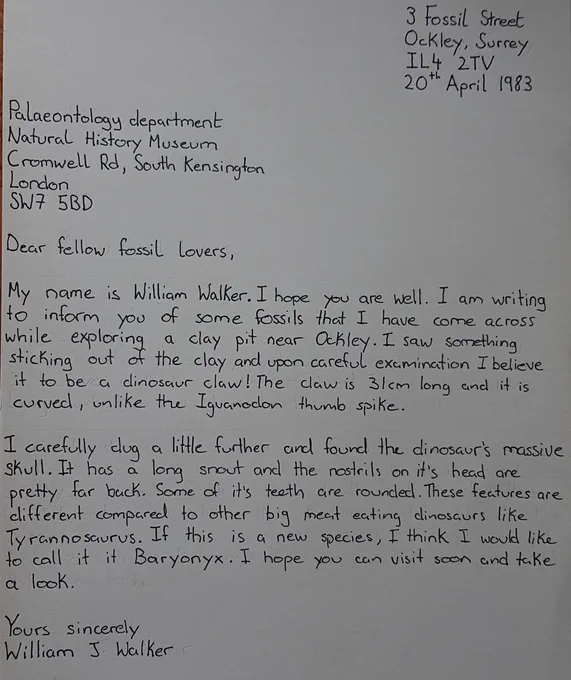 3 Fossil Street
Ockley, Surrey
IL4 2TV
20th April 1983
Palaeontology department
Natural History Museum
Cromwell Rd, South Kensington
London
SW7 5BD
Dear fellow fossil lovers,
My name is William Walker. I hope you are well. I am writing
to inform you of some fossils that I have come across
while exploring a clay pit near Ockley. I saw something
sticking out of the clay and upon careful examination I believe
it to be a dinosaur claw! The claw is 31cm long and it is
curved, unlike the Iguanodon thumb spike.
I carefully dug a little further and found the dinosaur's massive
skull. It has a long snout and the nostrils on it's head are
pretty far back. Some of it's teeth are rounded. These features are
different compared to other big meat eating dinosaurs like
Tyrannosaurus. If this is a new species, I think I would like
to call it it Baryonyx. I hope you can visit soon and take
a look.
Yours sincerely
William J Walker